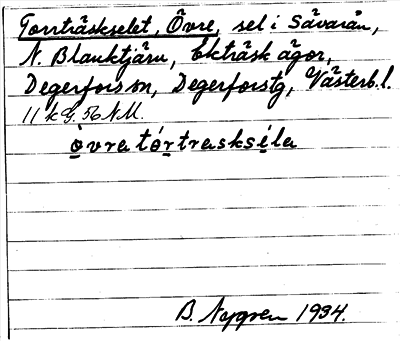 Torrträskselet, Övre, sel i Sävarån,
N. Blanktjärn, Ekträsk ägor,
Degerfors sn, Degerforstg, Västerb. l.
11 kG. 56 N.M.
òvra tórtraskséla
B. Nygren 1934.